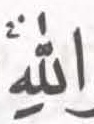 اللّٰهِ